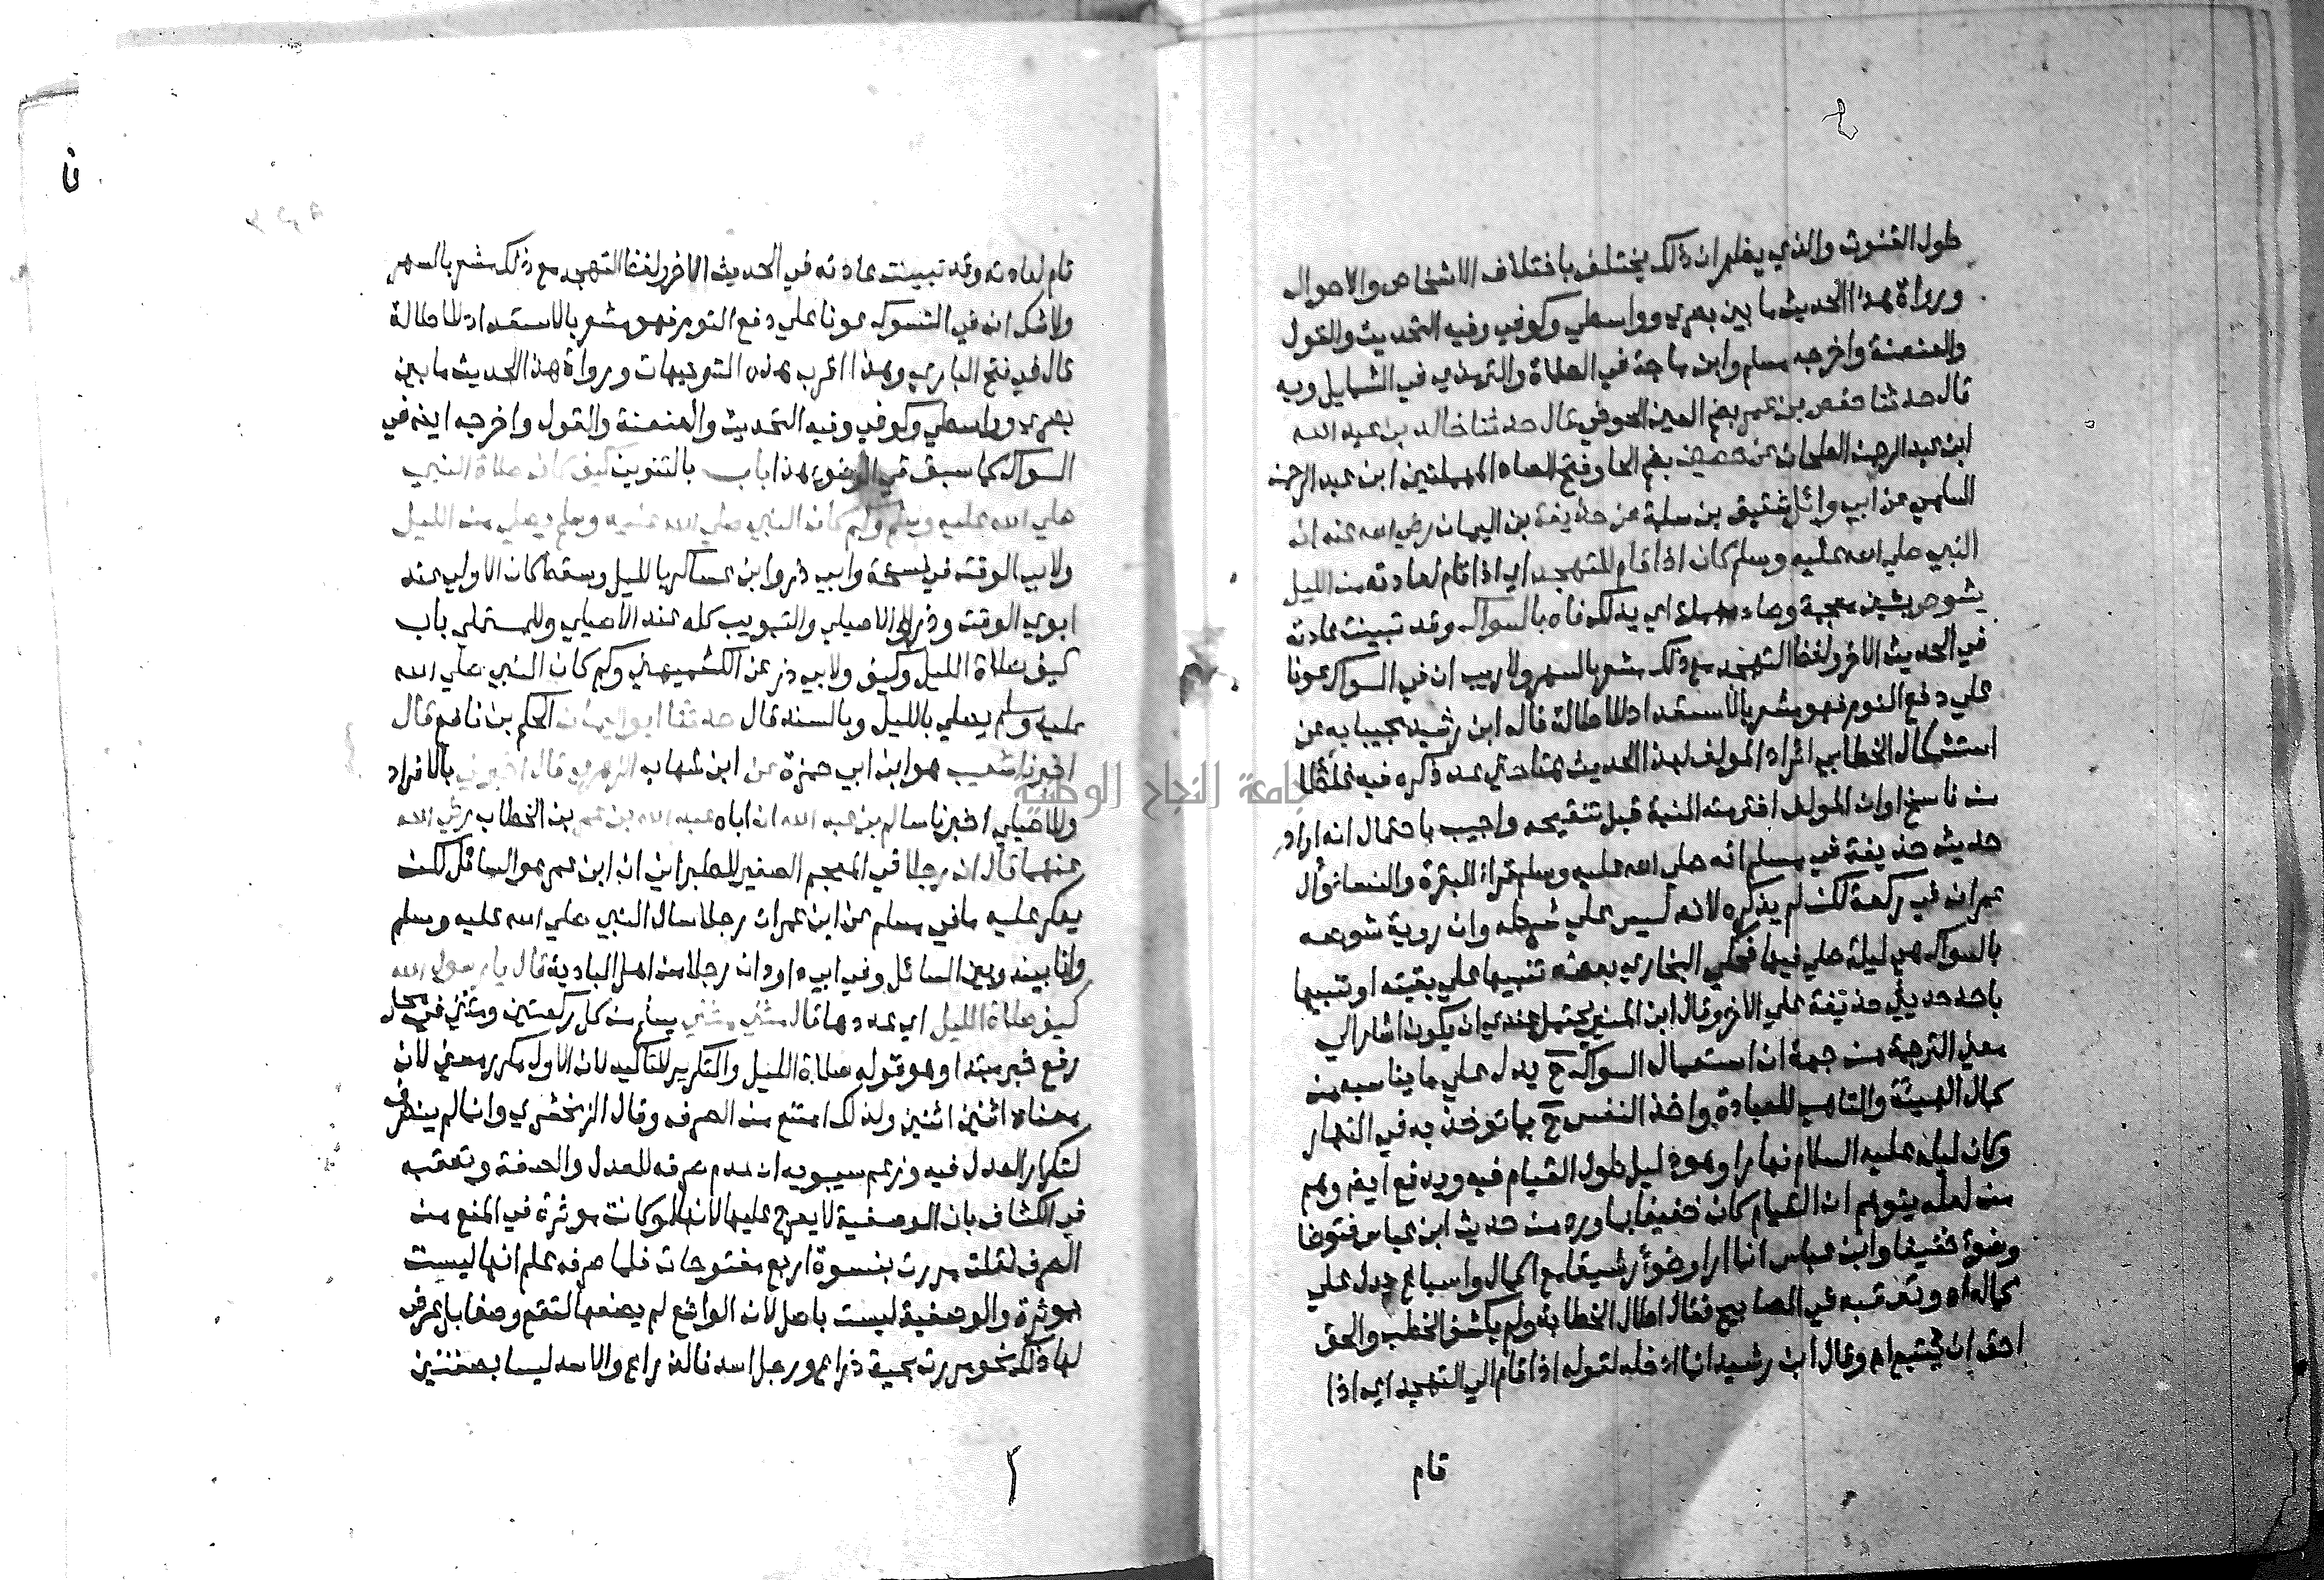 طول القنوت والذي يظهر ان ذلك يختلف باختلاف الاشخاص والاحوال
ورواة هذا الحديث ما بين بصري وواسطي وكوفي وفيه التحديث والقول
والعنعنة واخرجه مسلم وابن ماجة في الصلاة والترمذي في الشمايل وبه
قال حدثنا حفص بن عمر بضم العين الحوضي قال حدثنا خالد بن عبد الله
ابن عبد الرحمن الطحان عن حصين بضم الحا وفتح الصاد المهملتين ابن عبد الرحمن
السلمي عن ابي وائل شقيق بن سلمة عن حذيفة بن اليمان رضي الله عنه ان
النبي صلي الله عليه وسلم كان اذا قام للتهجد اي اذا قام لعادته من الليل
يشوص بشين معجمة وصاد مهملة اي يدلك فاه بالسواك وقد تبينت عادته
في الحديث الاخر ولفظ التهجد مع ذلك مشعر بالسهر ولا ريب ان في السواك عونا
علي دفع النوم فهو مشعر بالاستعداد للاطالة قاله ابن رشيد مجيبا به عن
استشكال الخطابي ايراد المولف لهذا الحديث هنا حتي عد ذكره فيه غلطا
من ناسخ او ان المولف اخترمته المنية قبل تنقيحه واجيب باحتمال انه اراد
حديث حذيفة في مسلم انه صلي الله عليه وسلم قرا البقرة والنسا وال
عمران في ركعة لكن لم يذكره لانه ليس علي شرطه وان رويه شوصه
بالسواك هي ليلة صلي فيها فحكي البخاري بعضه تنبيها علي بقيته او تنبيها
باحد حديثي حذيفة علي الاخر وقال ابن المنير يحتمل عندي ان يكون اشار الي
معني الترجمة من جهة ان استعمال السواك ح يدل علي ما يناسبه من
كمال الهيئة والتاهب للعبادة واخذ النفس ح بما توخذ به في النهار
وكان ليله عليه السلام نهارا وهو دليل طول القيام فيه ويدفع ايضا وهم
من لعله يتوهم ان القيام كان خفيفا بما ورد من حديث ابن عباس فتوضا
وضوءا خفيفا وابن عباس انما اراد وضوءا رشيقا مع اكمال واسباغ يدل علي
كماله اه وتعقبه في المصابيح فقال اطال الخطابة ولم يكشف الخطب والحق
احق ان يتبع اه وقال ابن رشيد انما ادخله لقوله اذا قام الي التهجد اي اذا
قام
قام لعادته وقد تبينت عادته في الحديث الاخر ولفظ التهجد مع ذلك مشعر بالسهر
ولا شك ان في التسوك عونا علي دفع النوم فهو مشعر بالاستعداد للاطالة
قال في فتح الباري وهذا اقرب هذه التوجيهات ورواة هذا الحديث ما بين
بصري وواسطي وكوفي وفيه التحديث والعنعنة والقول واخرجه ايضا في
السواك كما سبق في الوضوء هذا باب بالتنوين كيف كان صلاة النبي
صلي الله عليه وسلم وكم كان النبي صلي الله عليه وسلم يصلي من الليل
ولابي الوقت في نسخة وابي ذر وابن عساكر بالليل وسقط كان الاولي عند
ابوي الوقت وذر والاصيلي والتبويب كله عند الاصيلي وللمستملي باب
كيف صلاة الليل وكيف ولابي ذر عن الكشميهني وكم كان النبي صلي الله
عليه وسلم يصلي بالليل وبالسند قال حدثنا ابو اليمان الحكم بن نافع قال
اخبرنا شعيب هو ابن ابي حمزة عن ابن شهاب الزهري قال اخبرني بالافراد
وللاصيلي اخبرنا سالم بن عبد الله ان اباه عبد الله بن عمر بن الخطاب رضي الله
عنهما قال ان رجلا في المعجم الصغير للطبراني ان ابن عمر هو السائل لكن
يعكر عليه ما في مسلم عن ابن عمر ان رجلا سال النبي صلي الله عليه وسلم
وانا بينه وبين السائل وفي ابي داود ان رجلا من اهل البادية قال يا رسول الله
كيف صلاة الليل اي عددها قال مثني مثني يسلم من كل ركعتين ومثني في محل
رفع خبر مبتدا وهو قوله صلاة الليل والتكرير للتاكيد لان الاول مكرر معني لان
معناه اثنين اثنين ولذلك امتنع من الصرف وقال الزمخشري وانما لم ينصرف
لتكرار العدل فيه وزعم سيبويه ان عدم صرفه للعدل والصفة وتعقبه
في الكشاف بان الوصفية لا يعرج عليها لانها لو كانت موثرة في المنع من
الصرف لقلت مررت بنسوة اربع مفتوحات فلما صرفه علم انها ليست
موثرة والوصفية ليست باصل لان الواضع لم يضعها لتقع وصفا بل عرض
لها ذلك نحو مررت بحية ذراع ورجل اسد فالذراع والاسد ليسا بصفتين
جامعة النجاح الوطنية